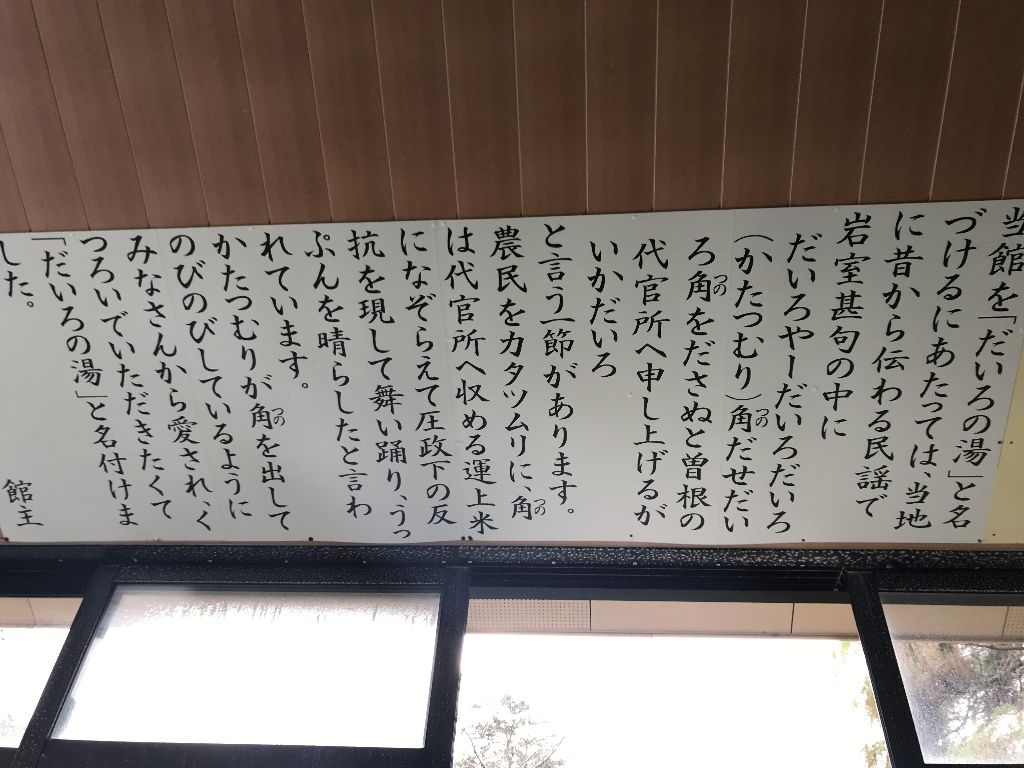 当館を「だいろの湯」と名
づけるにあたっては、当地
に昔から伝わる民謡で
岩室甚句の中に
だいろやーだいろだいろ
(かたつむり)角だせだい
つの
ろ角をださぬと曽根の
つの
代官所へ申し上げるが
いかだいろ
と言う一節があります。
農民をカタツムリに、角
つの
は代官所へ収める運上米
になぞらえて圧政下の反
抗を現して舞い踊り、うっ
ぷんを晴らしたと言わ
れています。
かたつむりが角を出して
つの
のびのびしているように
みなさんから愛され、く
つろいでいただきたくて
「だいろの湯」と名付けま
した。
館主